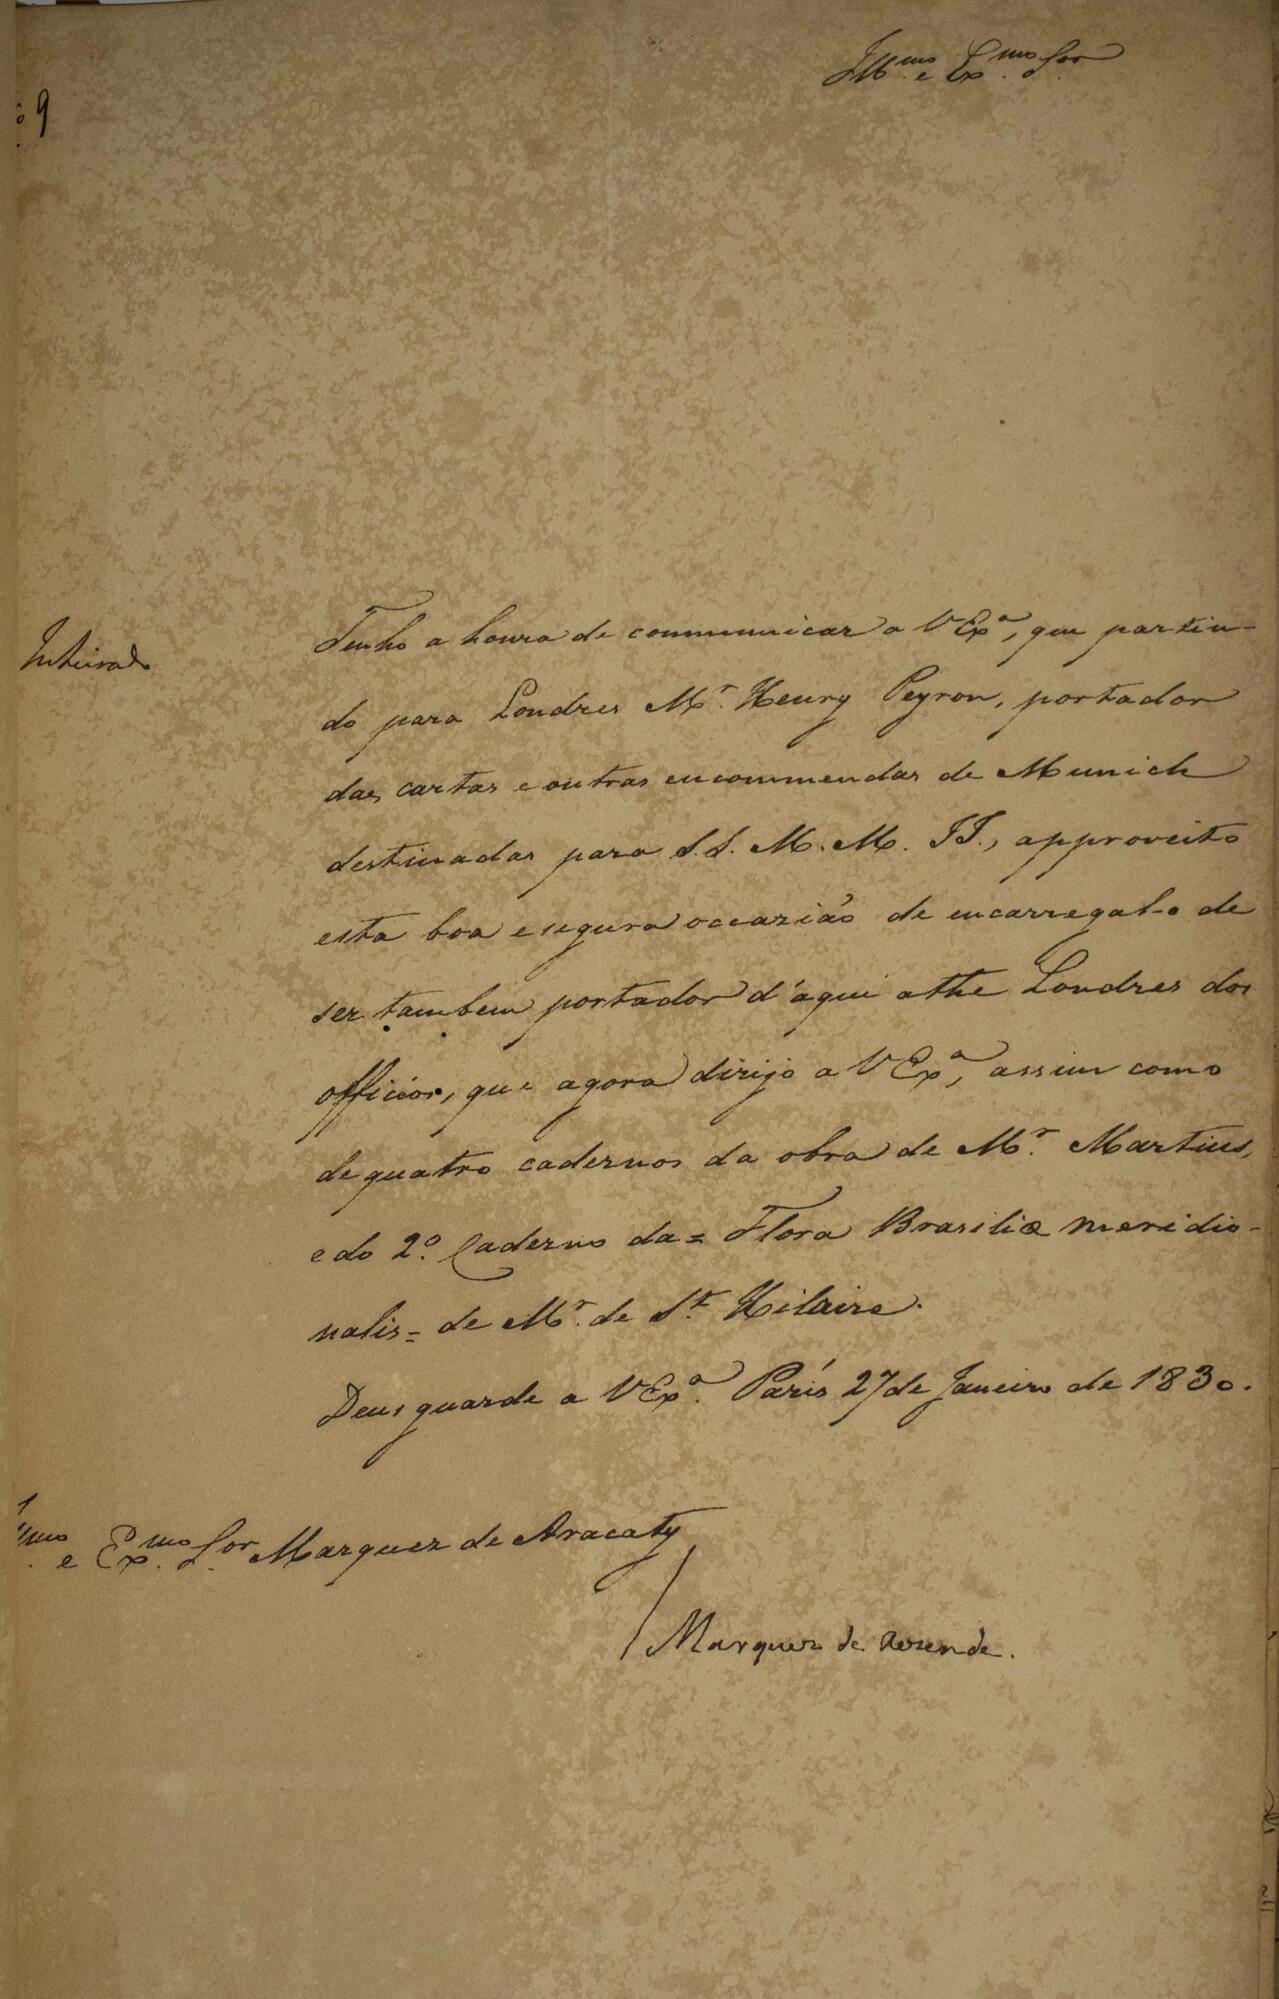 Ill.mo e Ex.mo Sor
º 9
Inteirado
Tenho a honra de communicar a V Ex.a, que partin-
do para Londres M.r Henry Peyron, portador
das cartas e outras encommendas de Munich
destinadas para S.S. M.M. II., approveito
esta boa e segura occazião de encarregal-o de
ser tambem portador d'aqui athe Londres dos
officios, que agora dirijo a V Ex.a, assim como
de quatro cadernos da obra de M.r Martius,
e do 2.º Caderno da = Flora Brasiliæ meridio-
nalis = de M.r de S.t Hilaire.
Deus guarde a V Ex.a París 27 de Janeiro de 1830.
mo e Ex.mo Sor Marquez de Aracaty
Marquez de Resende.